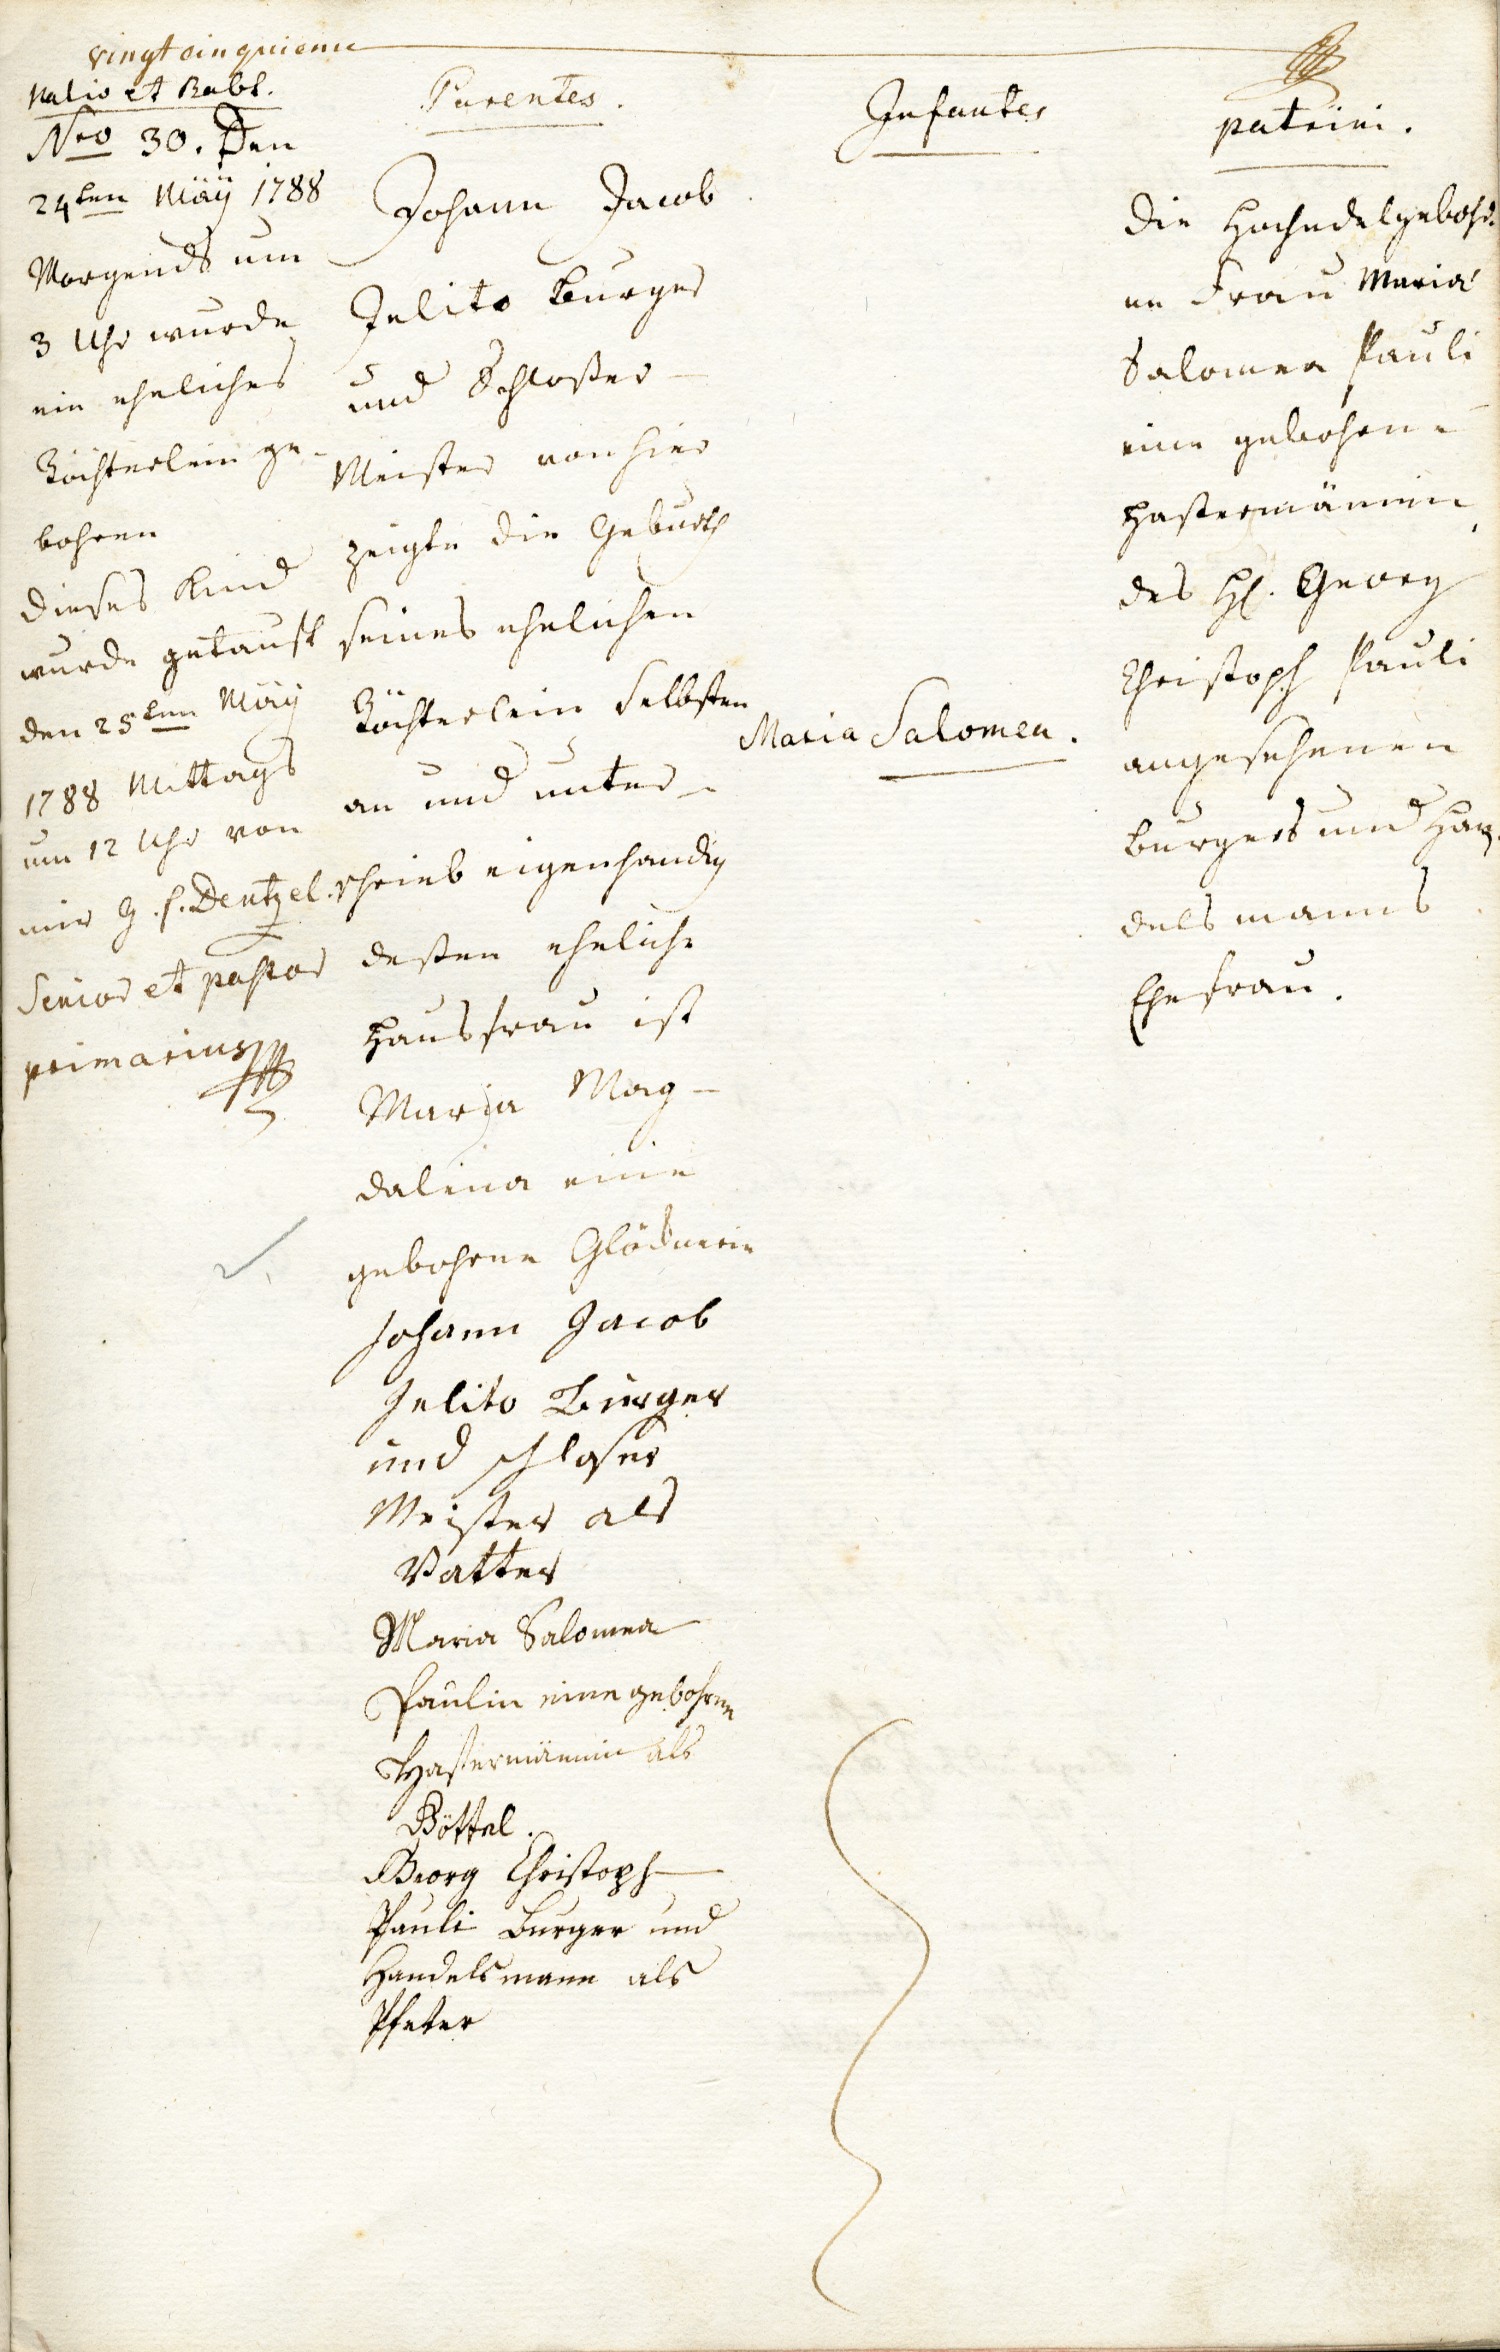 vingt cinquieme
Natio et Babt.
Nro 30. Den
24ten Mäÿ 1788
Morgends um
3 Uhr wurde
ein eheliches
Töchterlein ge-
bohren
dieses Kind
wurde getauft
den 25ten Mäÿ
1788 Mittags
um 12 Uhr von
mir G. f. Dentzel.
Senior et pastor
primarius
Parentes.
Johann Jacob
Jelito burger
und Schloßer-
Meister von hier
zeigte die Geburth
seines ehelichen
Töchterlein Selbsten
an und unter-
schrieb eigenhandig
deßen eheliche
hausfrau ist
Maria Mag-
dalena eine
gebohrne Glöcknerin
Johann Jacob
Jelito Burger
und schloser
Meister als
Vatter
Maria Salomea
Paulin eine gebohrne
Hastermännin als
Göttel.
Georg Christoph
Pauli Burger und
Handelsmann als
Pfeter
Infantes
Maria Salomea.
patrini.
die hochedelgebohr-
ne Frau Maria
Salomea Pauli
eine gebohrne
Hastermännin,
des H. Georg
Christoph Pauli
angesehenen
burgers und Han-
delsmanns
Ehefrau.